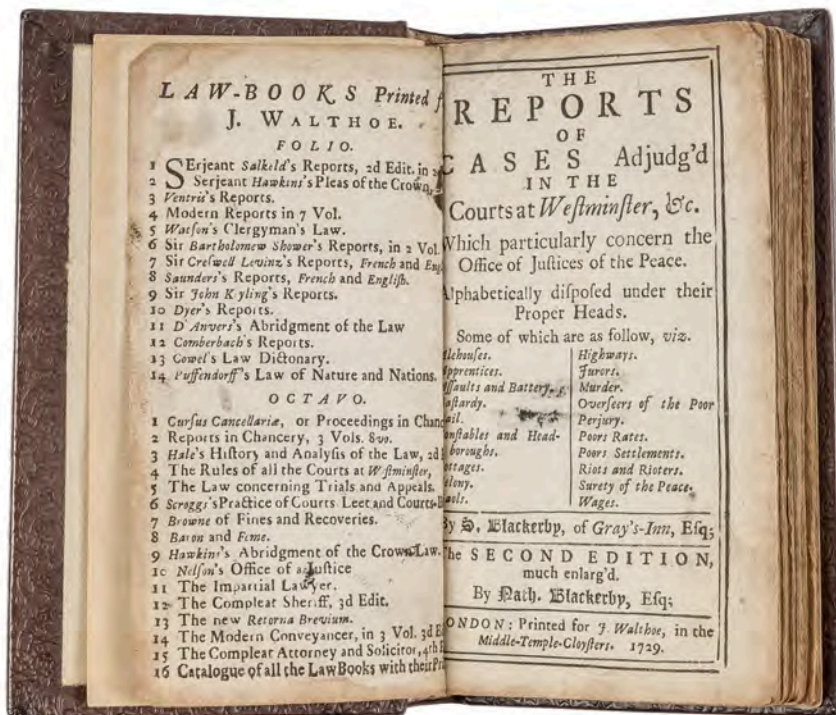 LAW-BOOKS Printed f
J. WALTHOE.
FOLIO.
1 SErjeant Salkeld's Reports, 2d Edit. in
2 Serjeant Hawkins's Pleas of the Crown,
3 Ventris's Reports.
4 Modern Reports in 7 Vol.
5 Watson's Clergyman's Law.
6 Sir Bartholomew Shower's Reports, in 2 Vol.
7 Sir Creſwell Levinz's Reports, French and Engl
8 Saunders's Reports, French and Engliſh.
9 Sir John Kyling's Reports.
10 Dyer's Reports.
11 D'Anvers's Abridgment of the Law
12 Comberbach's Reports.
13 Cowel's Law Dictonary.
14 Puffendorff's Law of Nature and Nations.
OCTAVO.
1 Curſus Cancellariæ, or Proceedings in Chanc
2 Reports in Chancery, 3 Vols. 8vo.
3 Hale's Hiſtory and Analyſis of the Law, 2d E
4 The Rules of all the Courts at Weſtminſter,
5 The Law concerning Trials and Appeals.
6 Scroggs's Practice of Courts Leet and Courts-B
7 Browne of Fines and Recoveries.
8 Baron and Feme.
9 Hawkins's Abridgment of the Crown Law.
10 Nelſon's Office of a Juſtice
11 The Impartial Lawyer.
12 The Compleat Sheriff, 3d Edit.
13 The new Retorna Brevium.
14 The Modern Conveyancer, in 3 Vol. 3d Ed
15 The Compleat Attorney and Solicitor, 4th E
16 Catalogue of all the Law Books with their Pri
THE
REPORTS
OF
CASES Adjudg'd
IN THE
Courts at Weſtminſter, &c.
Which particularly concern the
Office of Juſtices of the Peace.
Alphabetically diſpoſed under their
Proper Heads.
Some of which are as follow, viz.
lehouſes.
pprentices.
ſſaults and Battery.
aſtardy.
ail.
onſtables and Head-
boroughs.
ottages.
elony.
ools.
Highways.
Jurors.
Murder.
Overſeers of the Poor
Perjury.
Poors Rates.
Poors Settlements.
Riots and Rioters.
Surety of the Peace.
Wages.
By S. Blackerby, of Gray's-Inn, Eſq;
The SECOND EDITION,
much enlarg'd.
By Nath. Blackerby, Eſq;
ONDON: Printed for J. Walthoe, in the
Middle-Temple-Cloyſters. 1729.